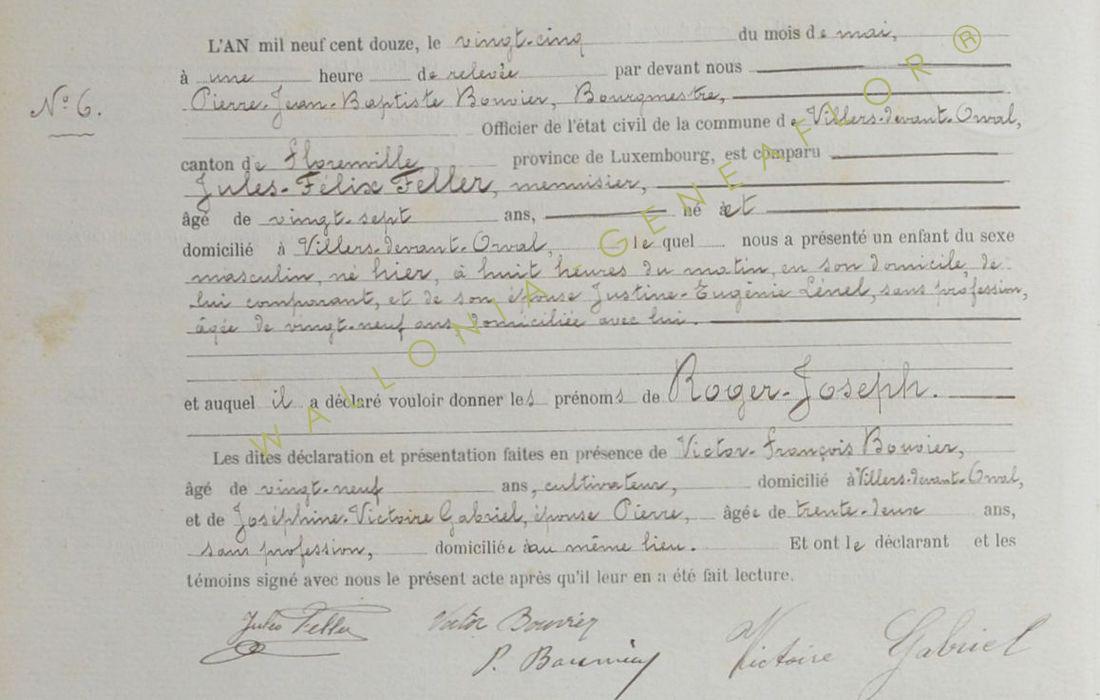 L'AN mil neuf cent douze, le vingt-cinq du mois de mai,
à une heure de relevée par devant nous
Nº 6.
Pierre-Jean-Baptiste Bouvier, Bourgmestre,
Officier de l'état civil de la commune de Villers-devant-Orval,
canton de Florenville province de Luxembourg, est comparu
Jules-Félix Feller, menuisier,
âgé de vingt-sept ans, né et
domicilié à Villers-devant-Orval, lequel nous a présenté un enfant du sexe
masculin, né hier, à huit heures du matin, en son domicile, de
lui comparant, et de son épouse Justine-Eugénie Lénel, sans profession,
âgée de vingt-neuf ans domiciliée avec lui.
et auquel il a déclaré vouloir donner les prénoms de Roger-Joseph.
Les dites déclaration et présentation faites en présence de Victor-François Bouvier,
âgé de vingt-neuf ans, cultivateur, domicilié à Villers-devant-Orval,
et de Joséphine-Victoire Gabriel, épouse Pierre, âgée de trente-deux ans,
sans profession, domiciliée au même lieu. Et ont le déclarant et les
témoins signé avec nous le présent acte après qu'il leur en a été fait lecture.
Jules Feller Victor Bouvier
P. Victoire Gabriel
WALLONIA GENEAFOR ®